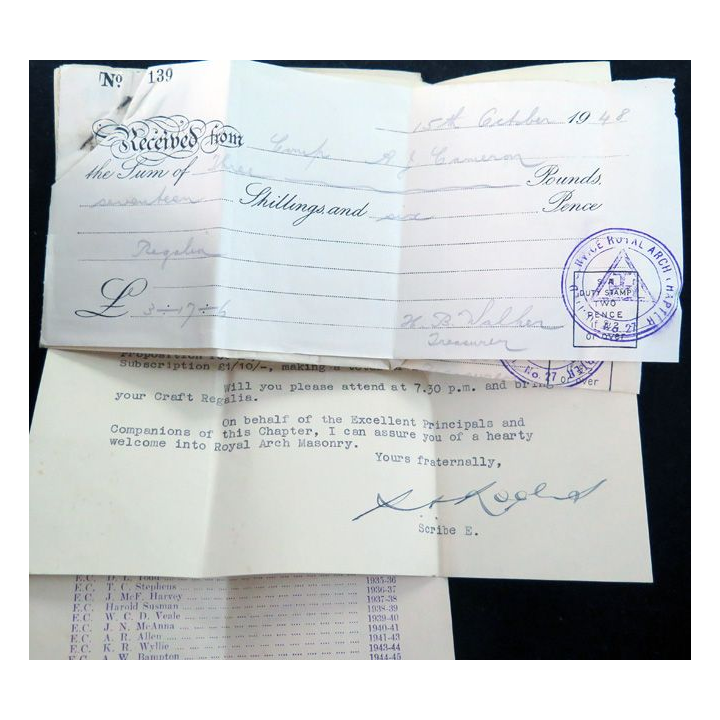 No 139
15th October 1948
Received from Comp R J Cameron
the Sum of Three Pounds,
seventeen Shillings and six Pence
Regalia
£ 3-17-6
H. B. Walker
Treasurer
ROYAL ARCH CHAPTER
No. 27
DUTY STAMP
TWO
PENCE
or over
No. 27
or over
Subscription £1/10/-, making a
Will you please attend at 7.30 p.m. and bring
your Craft Regalia.
On behalf of the Excellent Principals and
Companions of this Chapter, I can assure you of a hearty
welcome into Royal Arch Masonry.
Yours fraternally,
Scribe E.
E.C. D. L. Todd 1935-36
E.C. T. C. Stephens 1936-37
E.C. J. McF. Harvey 1937-38
E.C. Harold Susman 1938-39
E.C. W. C. D. Veale 1939-40
E.C. J. N. McAnna 1940-41
E.C. A. R. Allen 1941-43
E.C. K. R. Wyllie 1943-44
E.C. A. W. Bampton 1944-45